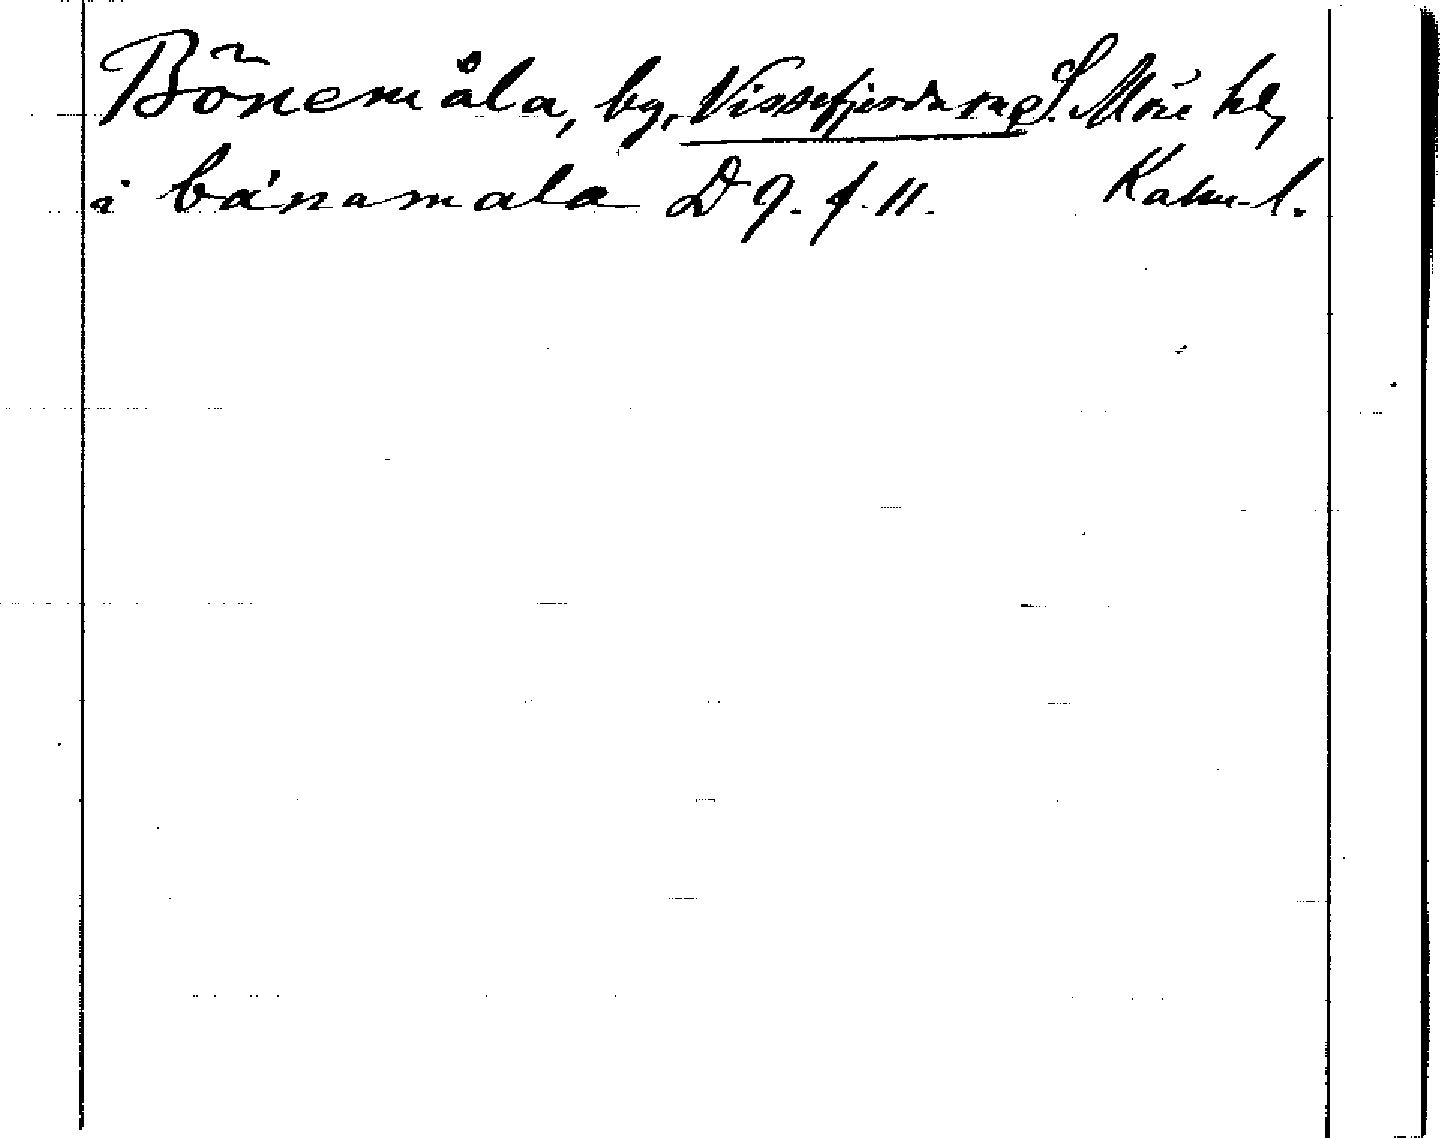 Bönemåla, by, Vissefjerda sn, S. Möre hd,
i bånamala D 9. f. 11. Kalm. l.